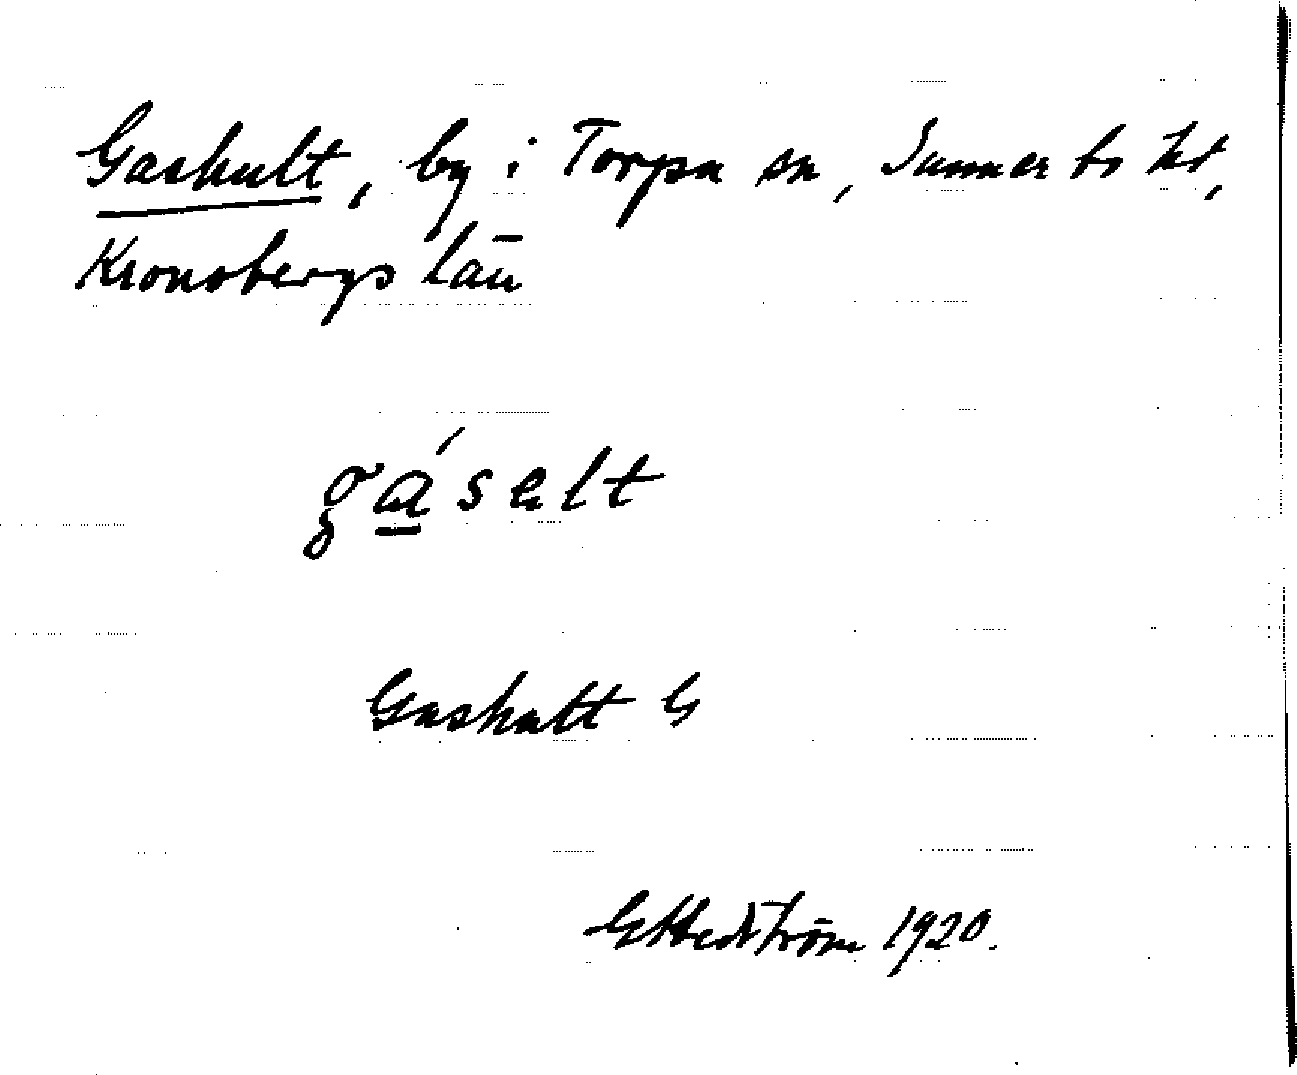 Gashult, by i Torpa sn, Sunnerbo hd,
Kronobergs län
gáselt
Gashult G
G Hedström 1920.